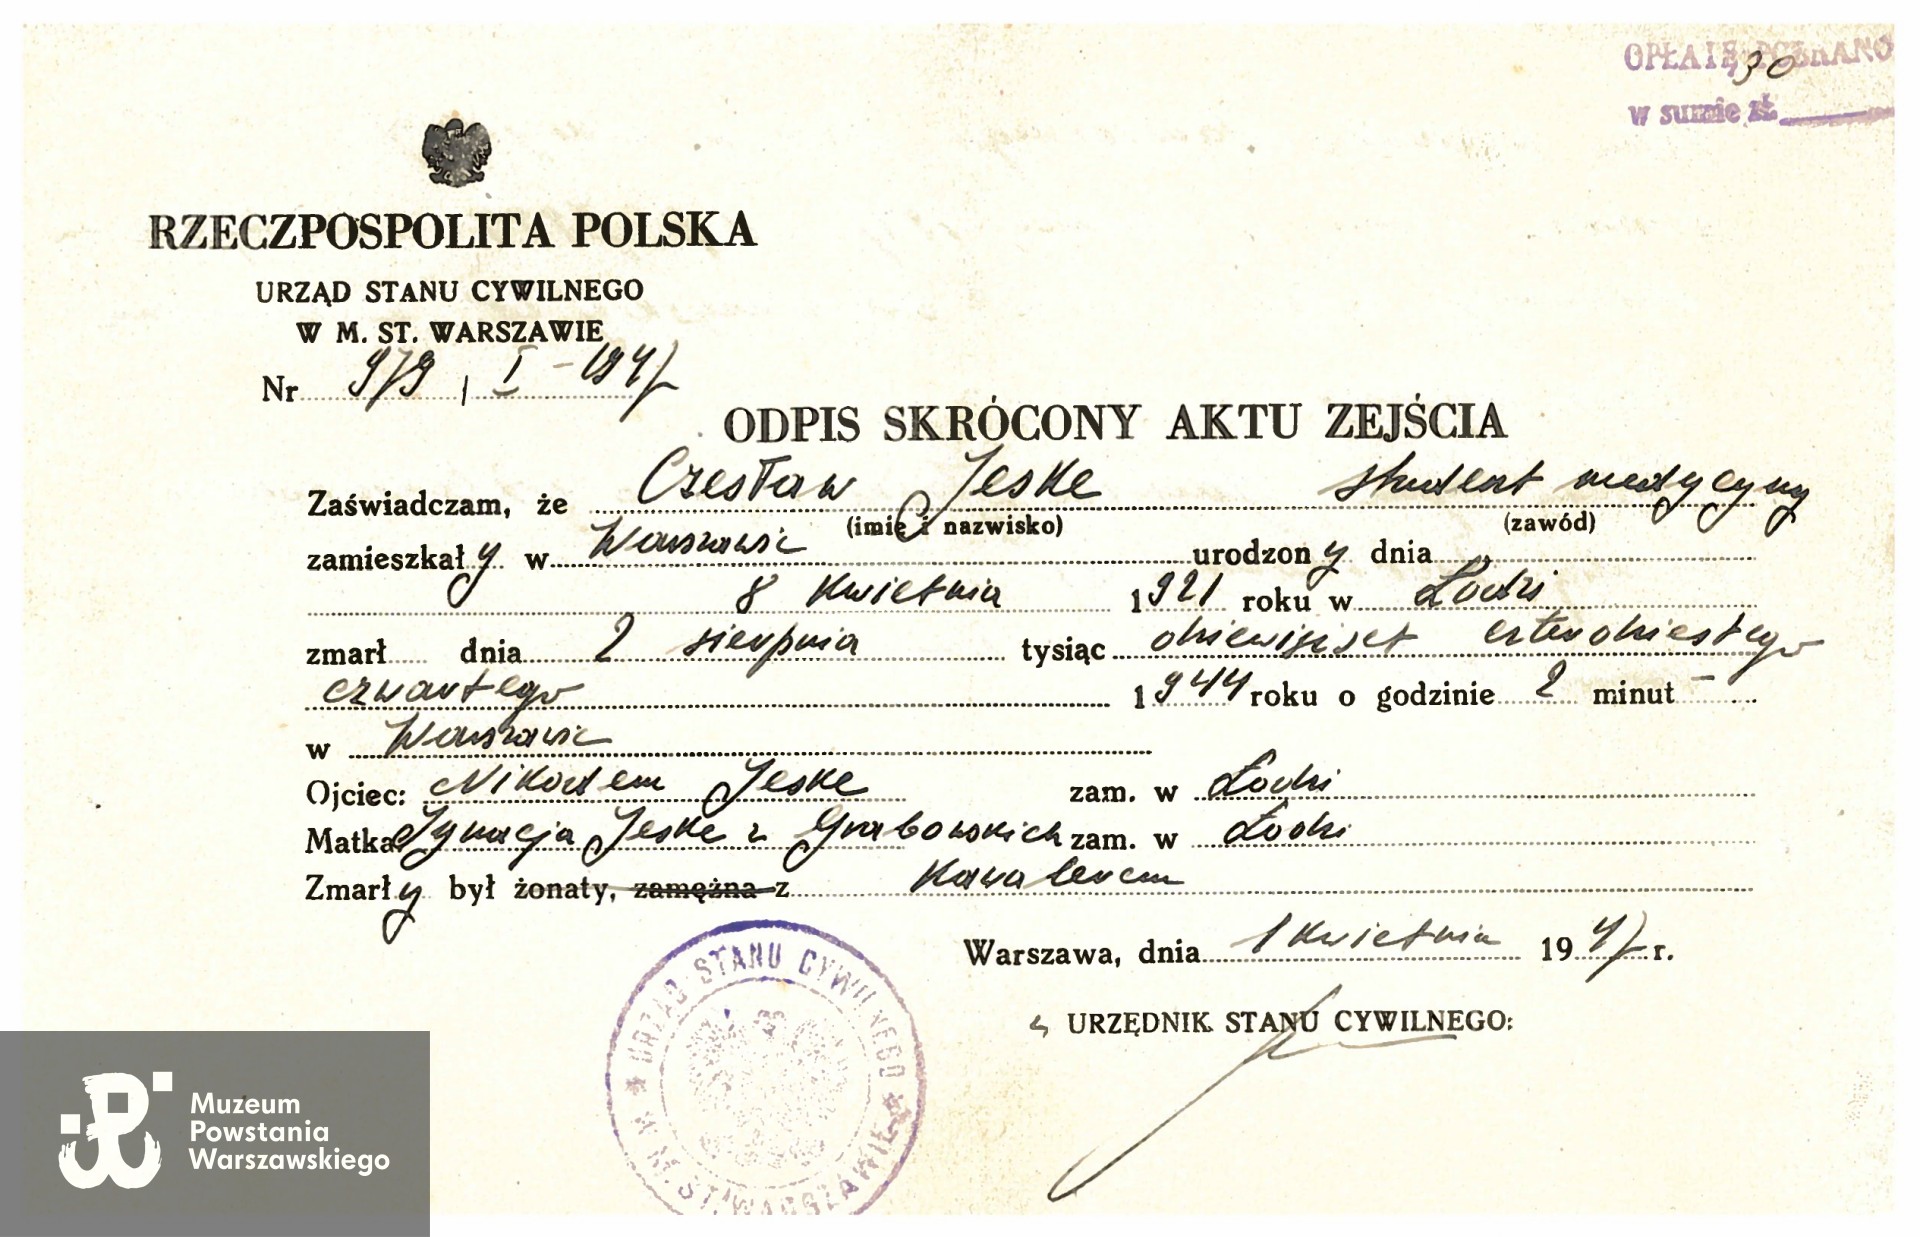 OPŁATĘ POBRANO
30
w sumie zł.
RZECZPOSPOLITA POLSKA
URZĄD STANU CYWILNEGO
W M. ST. WARSZAWIE
Nr 979 / I - 1947
ODPIS SKRÓCONY AKTU ZEJŚCIA
Zaświadczam, że Czesław Jeske student medycyny
(imię i nazwisko) (zawód)
zamieszkały w Warszawie urodzony dnia
8 kwietnia 1921 roku w Łodzi
zmarł dnia 2 sierpnia tysiąc dziewięćset czterdziestego
czwartego 1944 roku o godzinie 2 minut -
w Warszawie
Ojciec: Nikodem Jeske zam. w Łodzi
Matka: Ignacja Jeske z Grabowskich zam. w Łodzi
Zmarły był żonaty, zamężna z kawalerem
Warszawa, dnia 1 kwietnia 1947 r.
URZĘDNIK STANU CYWILNEGO:
URZĄD STANU CYWILNEGO
W M. ST. WARSZAWIE
Muzeum
Powstania
Warszawskiego